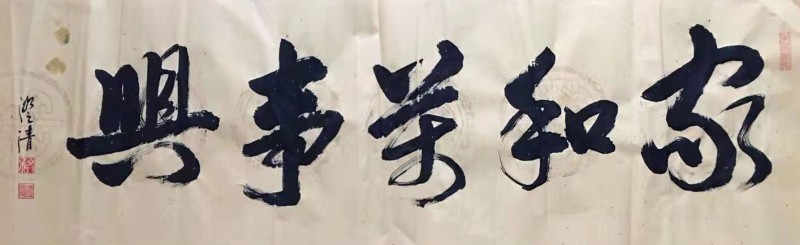 家和萬事興
澄清